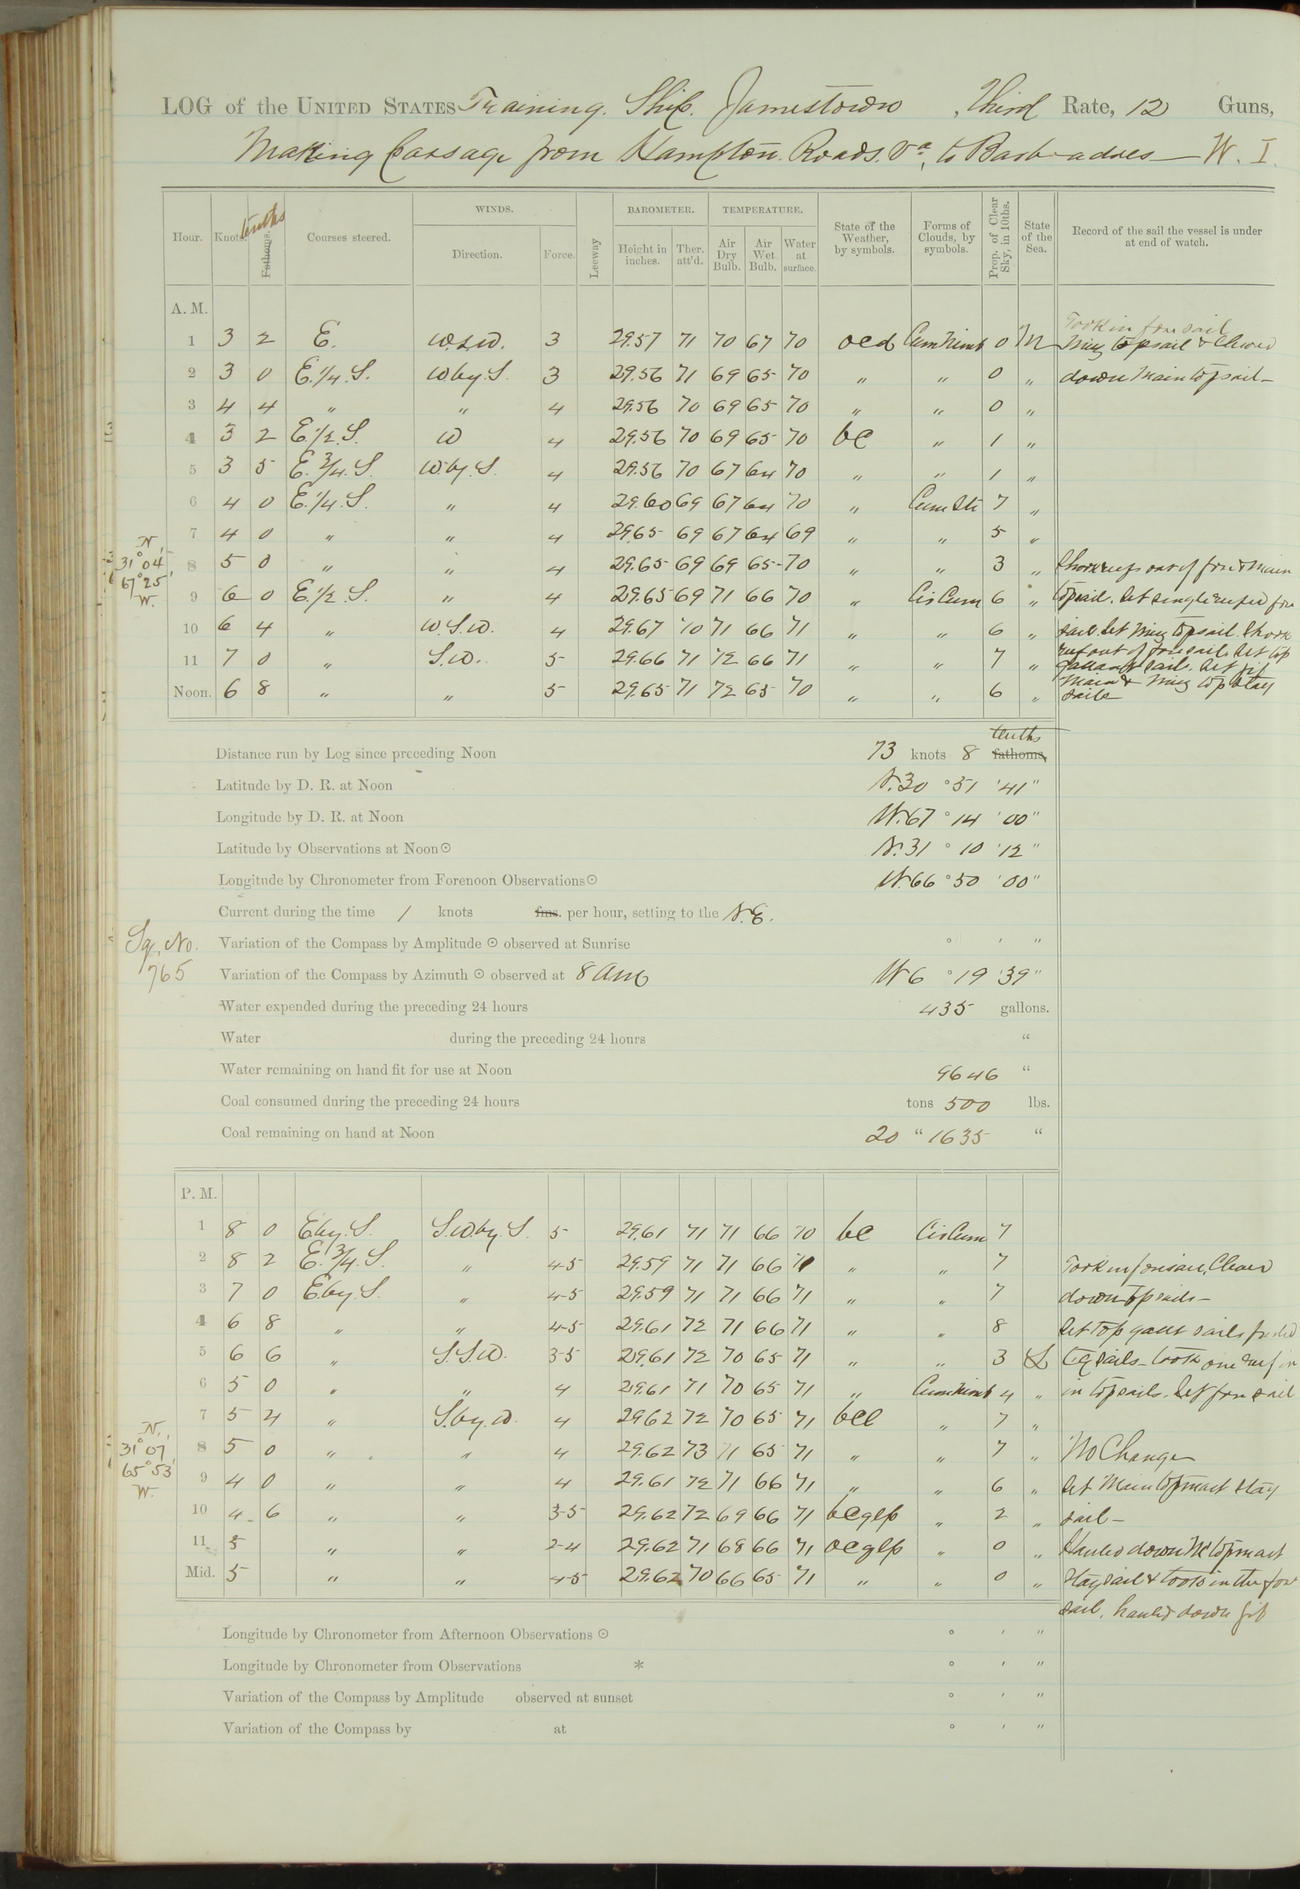 LOG of the UNITED STATES Training Ship Jamestown, Third Rate, 12 Guns,
Making Passage from Hampton Roads Va, to Barbadoes W. I.
Hour. Knots. tenths Fathoms. Courses steered. WINDS. Direction. Force. Leeway BAROMETER. Height in inches. Ther. att'd. TEMPERATURE. Air Dry Bulb. Air Wet Bulb. Water at surface. State of the Weather, by symbols. Forms of Clouds, by symbols. Prop. of Clear Sky, in 10ths. State of the Sea. Record of the sail the vessel is under at end of watch.
A. M.
Took in fore sail
1 3 2 E. W.S.W. 3 29.57 71 70 67 70 ocd Cum Nimb 0 M Miz topsail & Clewed
2 3 0 E.1/4.S. W by S. 3 29.56 71 69 65 70 " " 0 " down Main topsail–
3 4 4 " " 4 29.56 70 69 65 70 " " 0 "
4 3 2 E.1/2.S. W 4 29.56 70 69 65 70 bc " 1 "
5 3 5 E.3/4.S W by S. 4 29.56 70 67 64 70 " " 1 "
6 4 0 E.1/4.S " 4 29.60 69 67 64 70 " Cum Str 7 "
7 4 0 " " 4 29.65 69 67 64 69 " " 5 "
N. 31°04' 67°25' W.
8 5 0 " " 4 29.65 69 69 65 70 " " 3 " Shook reefs out of fore & main
9 6 0 E.1/2.S. " 4 29.65 69 71 66 70 " Cir Cum 6 " topsail. Set single reefed fore
10 6 4 " W.S.W. 4 29.67 70 71 66 71 " " 6 " sail. Set Miz topsail. Shook
11 7 0 " S.W. 5 29.66 71 72 66 71 " " 7 " reef out of fore sail. Set top gallant sail. Set jib
Noon. 6 8 " " 5 29.65 71 72 65 70 " " 6 " Main & Miz top stay sails
Distance run by Log since preceding Noon 73 knots 8 tenths fathoms,
Latitude by D. R. at Noon N. 30 ° 51 ' 41 "
Longitude by D. R. at Noon W. 67 ° 14 ' 00 "
Latitude by Observations at Noon ☉ N. 31 ° 10 ' 12 "
Longitude by Chronometer from Forenoon Observations ☉ W. 66 ° 50 ' 00 "
Current during the time 1 knots fms. per hour, setting to the N.E.
Sq. No. 765
Variation of the Compass by Amplitude ☉ observed at Sunrise ° ' "
Variation of the Compass by Azimuth ☉ observed at 8 am W 6 ° 19 ' 39 "
Water expended during the preceding 24 hours 435 gallons.
Water during the preceding 24 hours "
Water remaining on hand fit for use at Noon 9646 "
Coal consumed during the preceding 24 hours tons 500 lbs.
Coal remaining on hand at Noon 20 " 1635 "
P. M.
1 8 0 E by S. S.W. by S. 5 29.61 71 71 66 70 bc Cir Cum 7
2 8 2 E.3/4.S. " 4-5 29.59 71 71 66 71 " " 7 Took in foresail, Clewed
3 7 0 E. by S. " 4-5 29.59 71 71 66 71 " " 7 down topsails–
4 6 8 " " 4-5 29.61 72 71 66 71 " " 8 Set top gallt sails furled
5 6 6 " S.S.W. 3-5 29.61 72 70 65 71 " " 3 S tg sails– took one reef in
6 5 0 " " 4 29.61 71 70 65 71 " Cum Nimb 4 " in topsails. Set fore sail
7 5 4 " S. by W. 4 29.62 72 70 65 71 bcl " 7 "
N. 31°07' 65°53' W.
8 5 0 " " 4 29.62 73 71 65 71 " " 7 " No Change
9 4 0 " " 4 29.61 72 71 66 71 " " 6 " Set Main topmast stay
10 4 6 " " 3-5 29.62 72 69 66 71 bcqlp " 2 " sail–
11 5 " " 2-4 29.62 71 68 66 71 ocqlp " 0 " Hauled down M topmast
Mid. 5 " " 4-5 29.62 70 66 65 71 " " 0 " stay sail & took in the fore
sail, hauled down jib
Longitude by Chronometer from Afternoon Observations ☉ ° ' "
Longitude by Chronometer from Observations * ° ' "
Variation of the Compass by Amplitude observed at sunset ° ' "
Variation of the Compass by at ° ' "